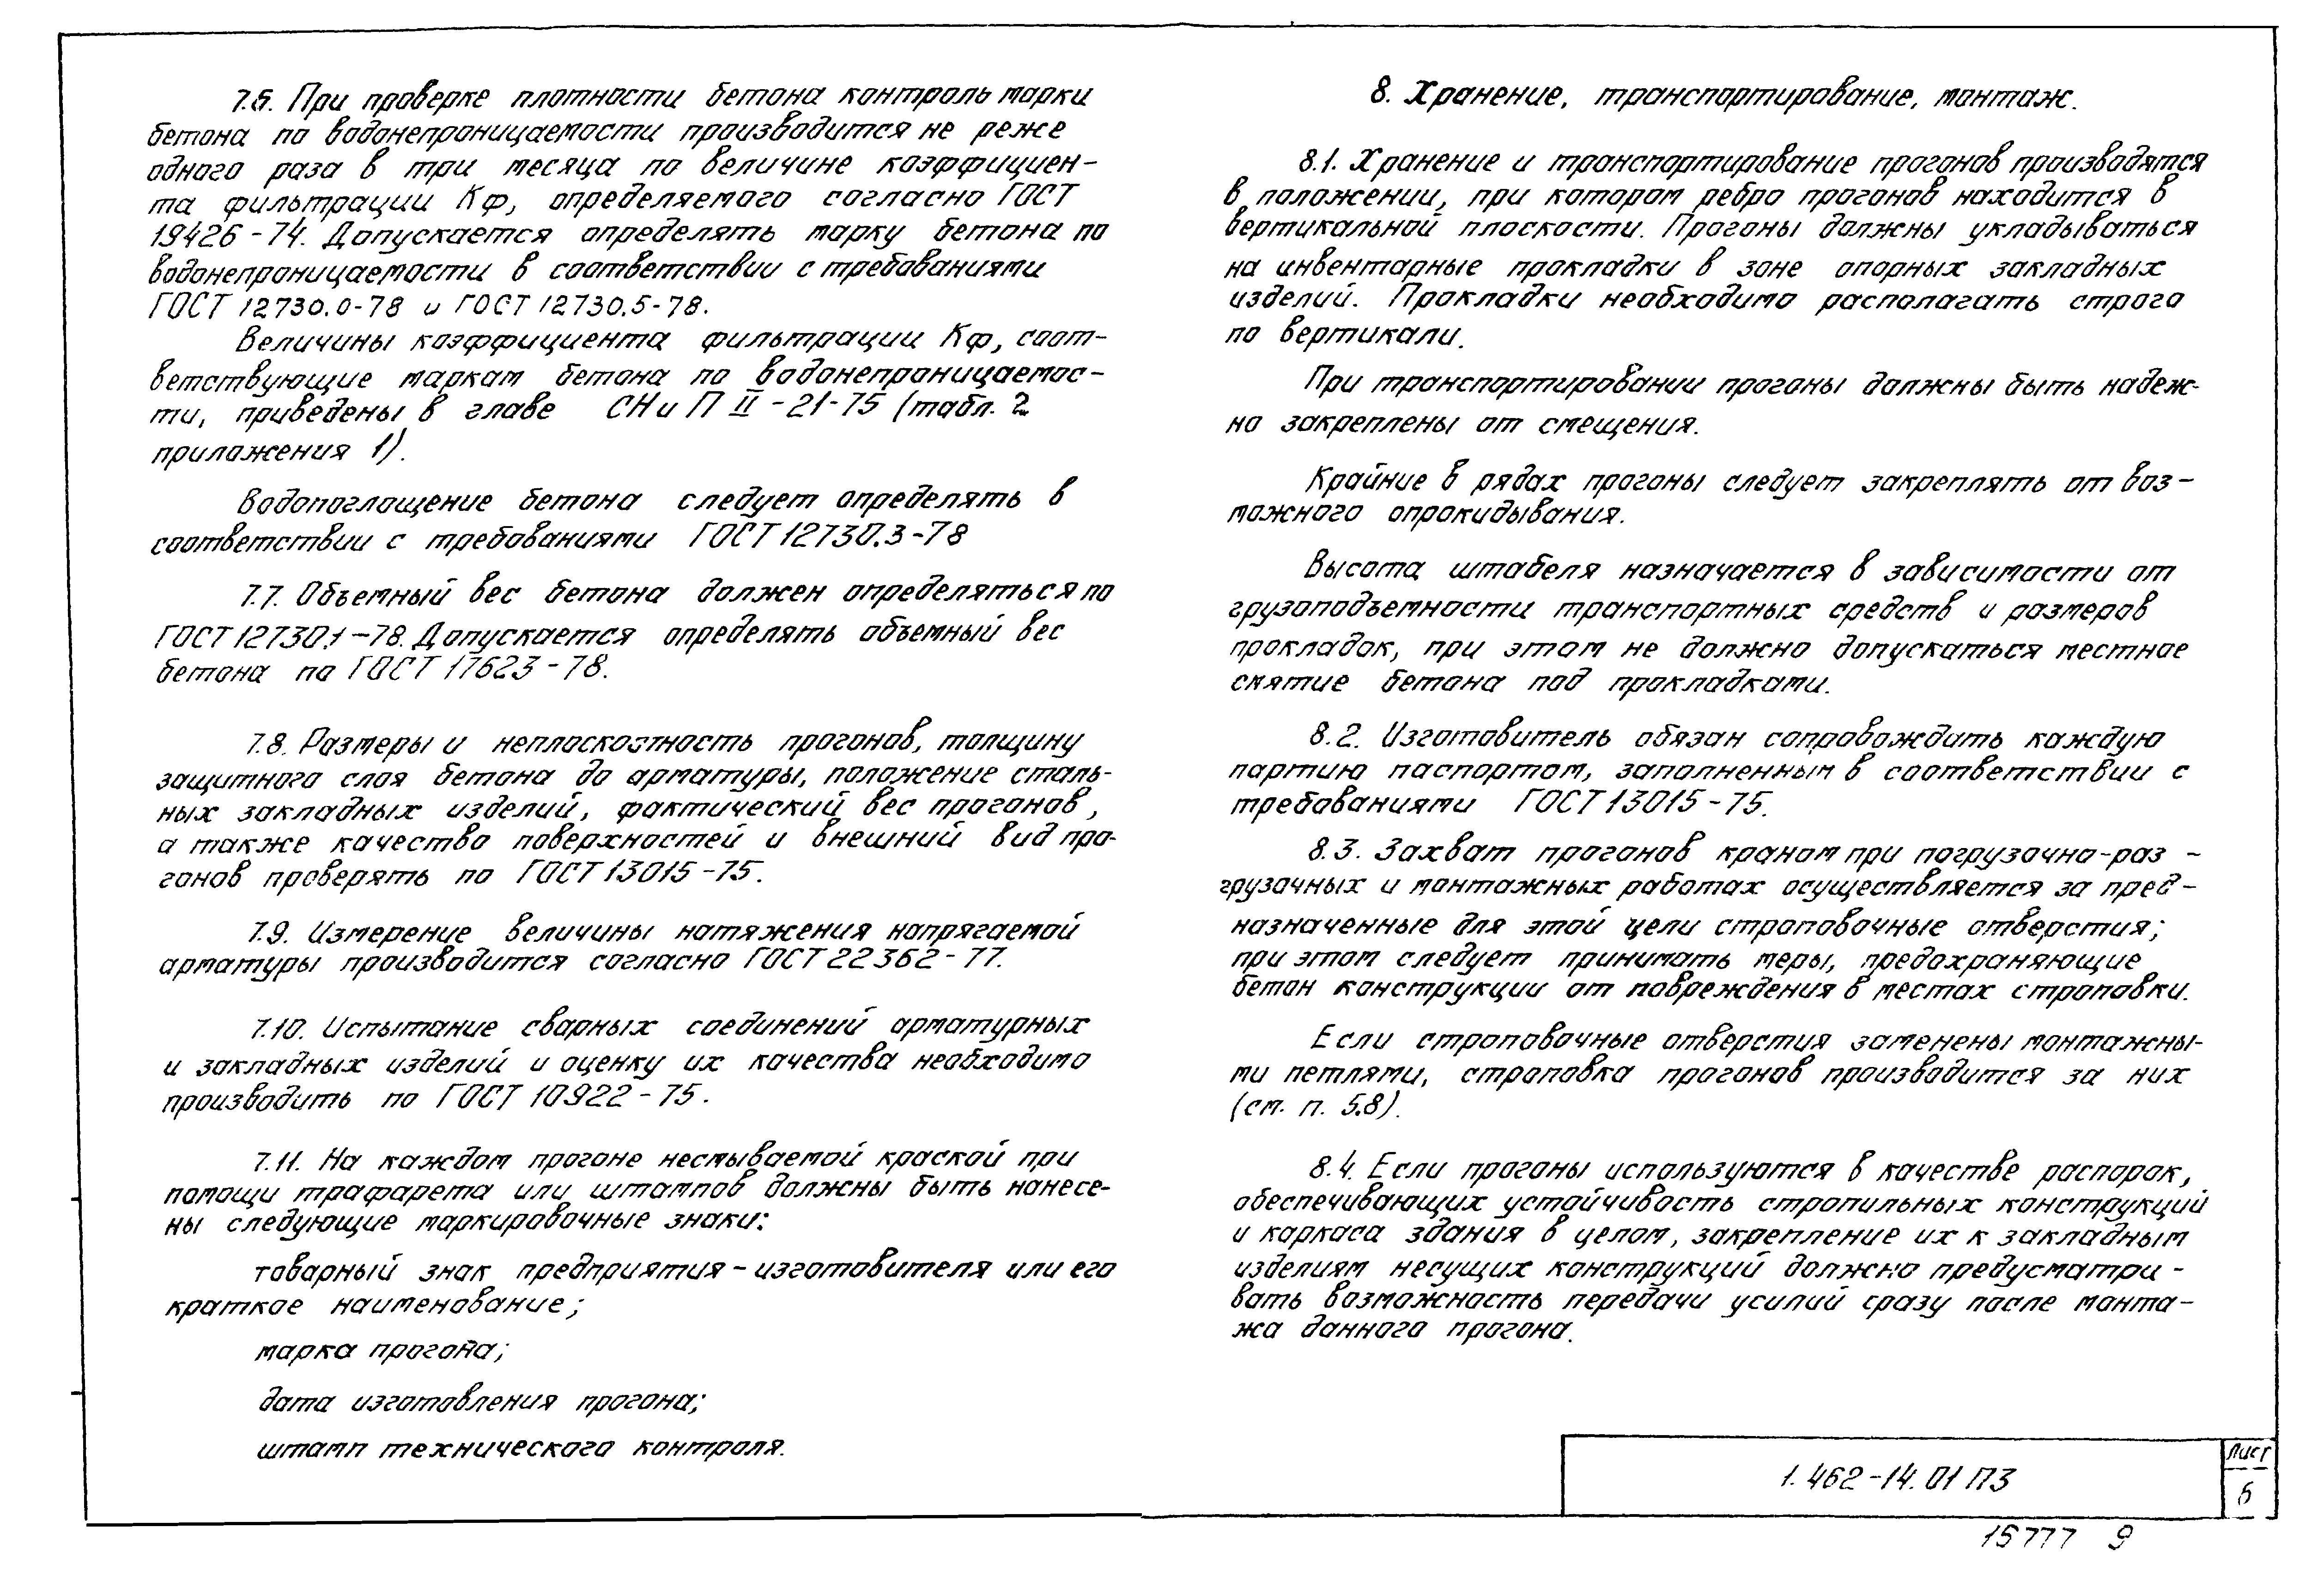 7.6. При проверке плотности бетона контроль марки
бетона по водонепроницаемости производится не реже
одного раза в три месяца по величине коэффициен-
та фильтрации Кф, определяемого согласно ГОСТ
19426-74. Допускается определять марку бетона по
водонепроницаемости в соответствии с требованиями
ГОСТ 12730.0-78 и ГОСТ 12730.5-78.
Величины коэффициента фильтрации Кф, соот-
ветствующие маркам бетона по водонепроницаемос-
ти, приведены в главе СНиП II-21-75 (табл. 2
приложения 1).
Водопоглощение бетона следует определять в
соответствии с требованиями ГОСТ 12730.3-78
7.7. Объемный вес бетона должен определяться по
ГОСТ 12730.1-78. Допускается определять объемный вес
бетона по ГОСТ 17623-78.
7.8. Размеры и неплоскостность прогонов, толщину
защитного слоя бетона до арматуры, положение сталь-
ных закладных изделий, фактический вес прогонов,
а также качество поверхностей и внешний вид про-
гонов проверять по ГОСТ 13015-75.
7.9. Измерение величины натяжения напрягаемой
арматуры производится согласно ГОСТ 22362-77.
7.10. Испытание сварных соединений арматурных
и закладных изделий и оценку их качества необходимо
производить по ГОСТ 10922-75.
7.11. На каждом прогоне несмываемой краской при
помощи трафарета или штампов должны быть нанесе-
ны следующие маркировочные знаки:
товарный знак предприятия-изготовителя или его
краткое наименование;
марка прогона;
дата изготовления прогона;
штамп технического контроля.
8. Хранение, транспортирование, монтаж.
8.1. Хранение и транспортирование прогонов производятся
в положении, при котором ребро прогонов находится в
вертикальной плоскости. Прогоны должны укладываться
на инвентарные прокладки в зоне опорных закладных
изделий. Прокладки необходимо располагать строго
по вертикали.
При транспортировании прогоны должны быть надеж-
но закреплены от смещения.
Крайние в рядах прогоны следует закреплять от воз-
можного опрокидывания.
Высота штабеля назначается в зависимости от
грузоподъемности транспортных средств и размеров
прокладок, при этом не должно допускаться местное
смятие бетона под прокладками.
8.2. Изготовитель обязан сопровождать каждую
партию паспортом, заполненным в соответствии с
требованиями ГОСТ 13015-75.
8.3. Захват прогонов краном при погрузочно-раз-
грузочных и монтажных работах осуществляется за пред-
назначенные для этой цели строповочные отверстия;
при этом следует принимать меры, предохраняющие
бетон конструкции от повреждения в местах строповки.
Если строповочные отверстия заменены монтажны-
ми петлями, строповка прогонов производится за них
(см. п. 5.8).
8.4. Если прогоны используются в качестве распорок,
обеспечивающих устойчивость стропильных конструкций
и каркаса здания в целом, закрепление их к закладным
изделиям несущих конструкций должно предусматри-
вать возможность передачи усилий сразу после монта-
жа данного прогона.
1.462-14.01 ПЗ
Лист
6
15777 9